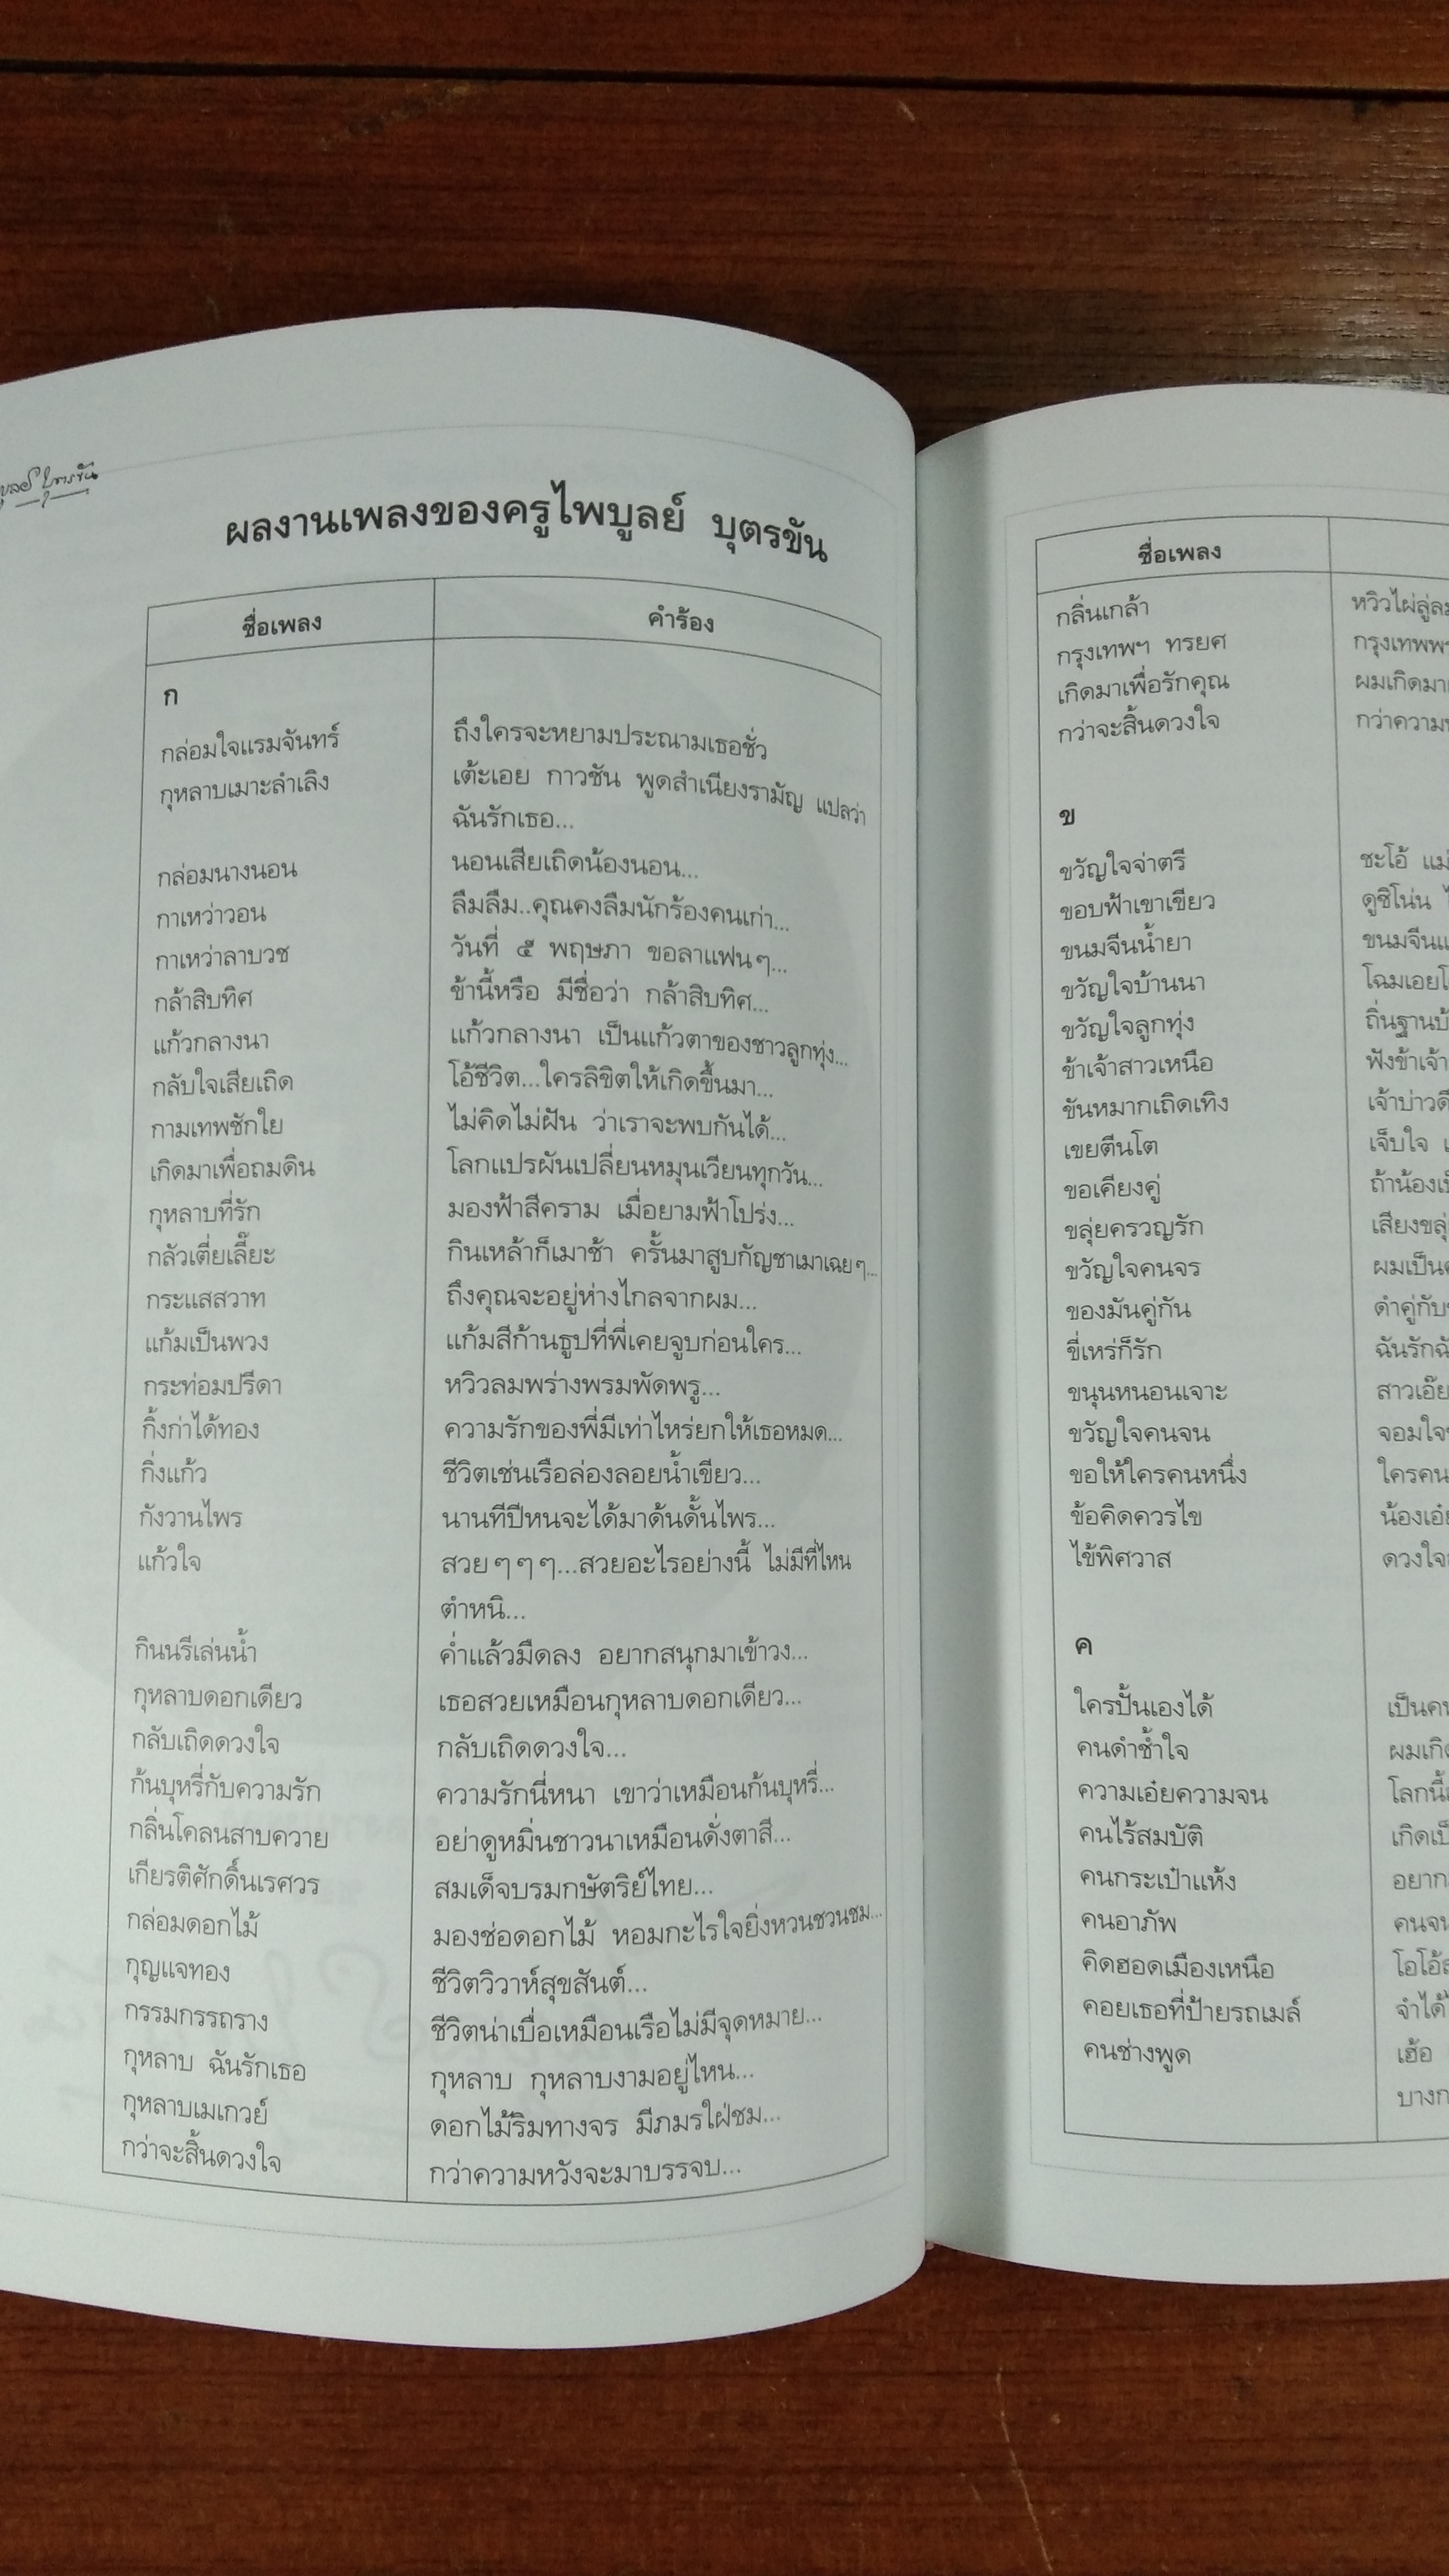 ผลงานเพลงของครูไพบูลย์ บุตรขัน
ชื่อเพลง คำร้อง
ก
กล่อมใจแรมจันทร์ ถึงใครจะหยามประณามเธอชั่ว
กุหลาบเมาะลำเลิง เต้ะเอย กาวชัน พูดสำเนียงรามัญ แปลว่า
ฉันรักเธอ...
กล่อมนางนอน นอนเสียเถิดน้องนอน...
กาเหว่าวอน ลืมลืม..คุณคงลืมนักร้องคนเก่า...
กาเหว่าลาบวช วันที่ ๕ พฤษภา ขอลาแฟนๆ...
กล้าสิบทิศ ข้านี้หรือ มีชื่อว่า กล้าสิบทิศ...
แก้วกลางนา แก้วกลางนา เป็นแก้วตาของชาวลูกทุ่ง...
กลับใจเสียเถิด โอ้ชีวิต...ใครลิขิตให้เกิดขึ้นมา...
กามเทพชักใย ไม่คิดไม่ฝัน ว่าเราจะพบกันได้...
เกิดมาเพื่อถมดิน โลกแปรผันเปลี่ยนหมุนเวียนทุกวัน...
กุหลาบที่รัก มองฟ้าสีคราม เมื่อยามฟ้าโปร่ง...
กลัวเตี่ยเลี๊ยะ กินเหล้าก็เมาช้า ครั้นมาสูบกัญชาเมาเฉยๆ...
กระแสสวาท ถึงคุณจะอยู่ห่างไกลจากผม...
แก้มเป็นพวง แก้มสีก้านธูปที่พี่เคยจูบก่อนใคร...
กระท่อมปรีดา หวิวลมพร่างพรมพัดพรู...
กิ้งก่าได้ทอง ความรักของพี่มีเท่าไหร่ยกให้เธอหมด...
กิ่งแก้ว ชีวิตเช่นเรือล่องลอยน้ำเขียว...
กังวานไพร นานทีปีหนจะได้มาด้นดั้นไพร...
แก้วใจ สวยๆๆๆ...สวยอะไรอย่างนี้ ไม่มีที่ไหน
ตำหนิ...
กินนรีเล่นน้ำ ค่ำแล้วมืดลง อยากสนุกมาเข้าวง...
กุหลาบดอกเดียว เธอสวยเหมือนกุหลาบดอกเดียว...
กลับเถิดดวงใจ กลับเถิดดวงใจ...
ก้นบุหรี่กับความรัก ความรักนี่หนา เขาว่าเหมือนก้นบุหรี่...
กลิ่นโคลนสาบควาย อย่าดูหมิ่นชาวนาเหมือนดั่งตาสี...
เกียรติศักดิ์นเรศวร สมเด็จบรมกษัตริย์ไทย...
กล่อมดอกไม้ มองช่อดอกไม้ หอมกะไรใจยิ่งหวนชวนชม...
กุญแจทอง ชีวิตวิวาห์สุขสันต์...
กรรมกรรถราง ชีวิตน่าเบื่อเหมือนเรือไม่มีจุดหมาย...
กุหลาบ ฉันรักเธอ กุหลาบ กุหลาบงามอยู่ไหน...
กุหลาบเมเกวย์ ดอกไม้ริมทางจร มีภมรใฝ่ชม...
กว่าจะสิ้นดวงใจ กว่าความหวังจะมาบรรจบ...
ชื่อเพลง
กลิ่นเกล้า หวิวไผ่ลู่ลม
กรุงเทพฯ ทรยศ กรุงเทพพ
เกิดมาเพื่อรักคุณ ผมเกิดมา
กว่าจะสิ้นดวงใจ กว่าความ
ข
ขวัญใจจ่าตรี ชะโอ้ แม่
ขอบฟ้าเขาเขียว ดูซิโน่น
ขนมจีนน้ำยา ขนมจีนแ
ขวัญใจบ้านนา โฉมเอยโ
ขวัญใจลูกทุ่ง ถิ่นฐานบ้
ข้าเจ้าสาวเหนือ ฟังข้าเจ้า
ขันหมากเถิดเทิง เจ้าบ่าวดี
เขยตีนโต เจ็บใจ
ขอเคียงคู่ ถ้าน้องเป็
ขลุ่ยครวญรัก เสียงขลุ่
ขวัญใจคนจร ผมเป็น
ของมันคู่กัน ดำคู่กับ
ขี่เหร่ก็รัก ฉันรักฉั
ขนุนหนอนเจาะ สาวเอ๊ย
ขวัญใจคนจน จอมใจ
ขอให้ใครคนหนึ่ง ใครคน
ข้อคิดควรไข น้องเอ๋ย
ไข้พิศวาส ดวงใจ
ค
ใครปั้นเองได้ เป็นค
คนดำช้ำใจ ผมเกิ
ความเอ๋ยความจน โลกนี้
คนไร้สมบัติ เกิดเป็
คนกระเป๋าแห้ง อยาก
คนอาภัพ คนจน
คิดฮอดเมืองเหนือ โอโอ้
คอยเธอที่ป้ายรถเมล์ จำได้
คนช่างพูด เฮ้อ
บางก